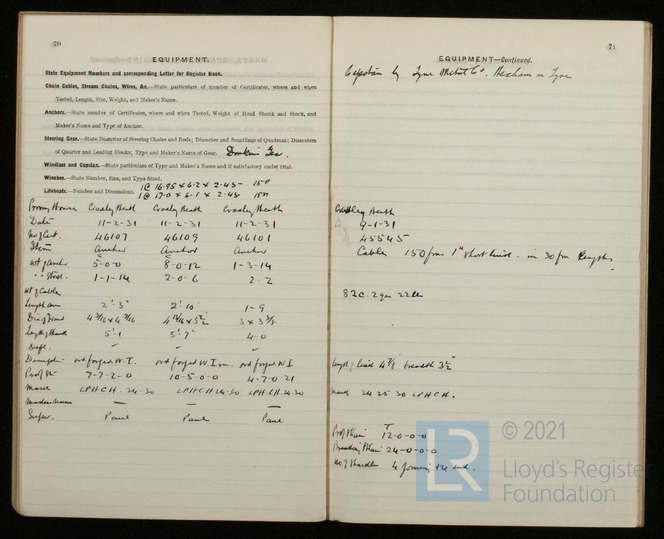 70
EQUIPMENT.
State Equipment Numbers and corresponding Letter for Register Book.
Chain Cables, Stream Chains, Wires, &c.—State particulars of number of Certificates, where and when
Tested, Length, Size, Weight, and Maker's Name.
Anchors.—State number of Certificates, where and when Tested, Weight of Head Shank and Stock, and
Maker's Name and Type of Anchor.
Steering Gear.—State Diameter of Steering Chains and Rods; Diameter and Scantlings of Quadrant; Diameters
of Quarter and Leading Blocks; Type and Maker's Name of Gear. Donkin Gear.
Windlass and Capstan.—State particulars of Type and Maker's Name and if satisfactory under trial.
Winches.—State Number, Size, and Type fitted.
1 @ 16.95 x 6.2 x 2.45
Lifeboats.—Number and Dimensions. 1 @ 17.0 x 6.1 x 2.45
Proving House Cradley Heath Cradley Heath Cradley Heath
Date 11-2-31 11-2-31 11-2-31
No of Cert. 46107 46109 46101
Item Anchor Anchor Anchor
Wt of Anchor 5-0-0 8-0-12 1-3-14
" " Stock 1-1-14 2-0-6 2-2
Wt of Cable
Length arm 2'-3" 2'10" 1-9
Length Shank 5'-1 5'-7" 4-0
7-7-2-0 10-5-0-0 4-7-0-21
Mark LPHCH. 24-30 LPHCH 24-30 LPH.CH.24-30
Makers name — — —
Super. Paul Paul Paul
71
EQUIPMENT—Continued.
Capstan by Tyne Metal Co. Hexham on Tyne
Cradley Heath
9-1-31
45545
Cable 150 fms 1" short link. in 30 fm lengths
82c. 2qrs 22lbs
length of link 4 7/8 breadth 3 1/2
mark 24 25 30 LPHCH.
Proof Strain 12-0-0-0
Breaking Strain 24-0-0-0
No of Shackles 4 joining
LR
© 2021
Lloyd's Register
Foundation